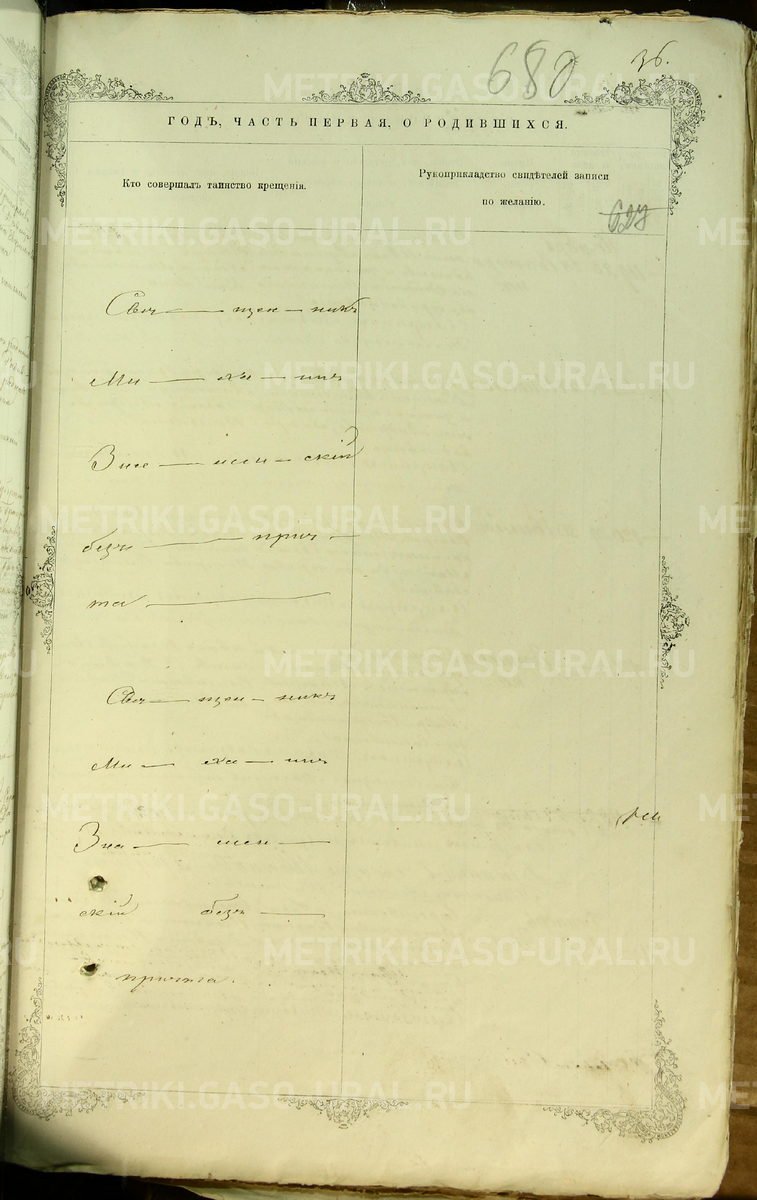 680
36.
ГОДЪ, ЧАСТЬ ПЕРВАЯ, О РОДИВШИХСЯ.
Кто совершалъ таинство крещенія.
Рукоприкладство свидѣтелей записи
по желанію.
627
Свя — щен — никъ
Ми — ха — илъ
Зна — мен — скій
безъ — прич —
та —
Свя — щен — никъ
Ми — ха — илъ
Зна — мен —
скій безъ —
причта.
METRIKI.GASO-URAL.RU